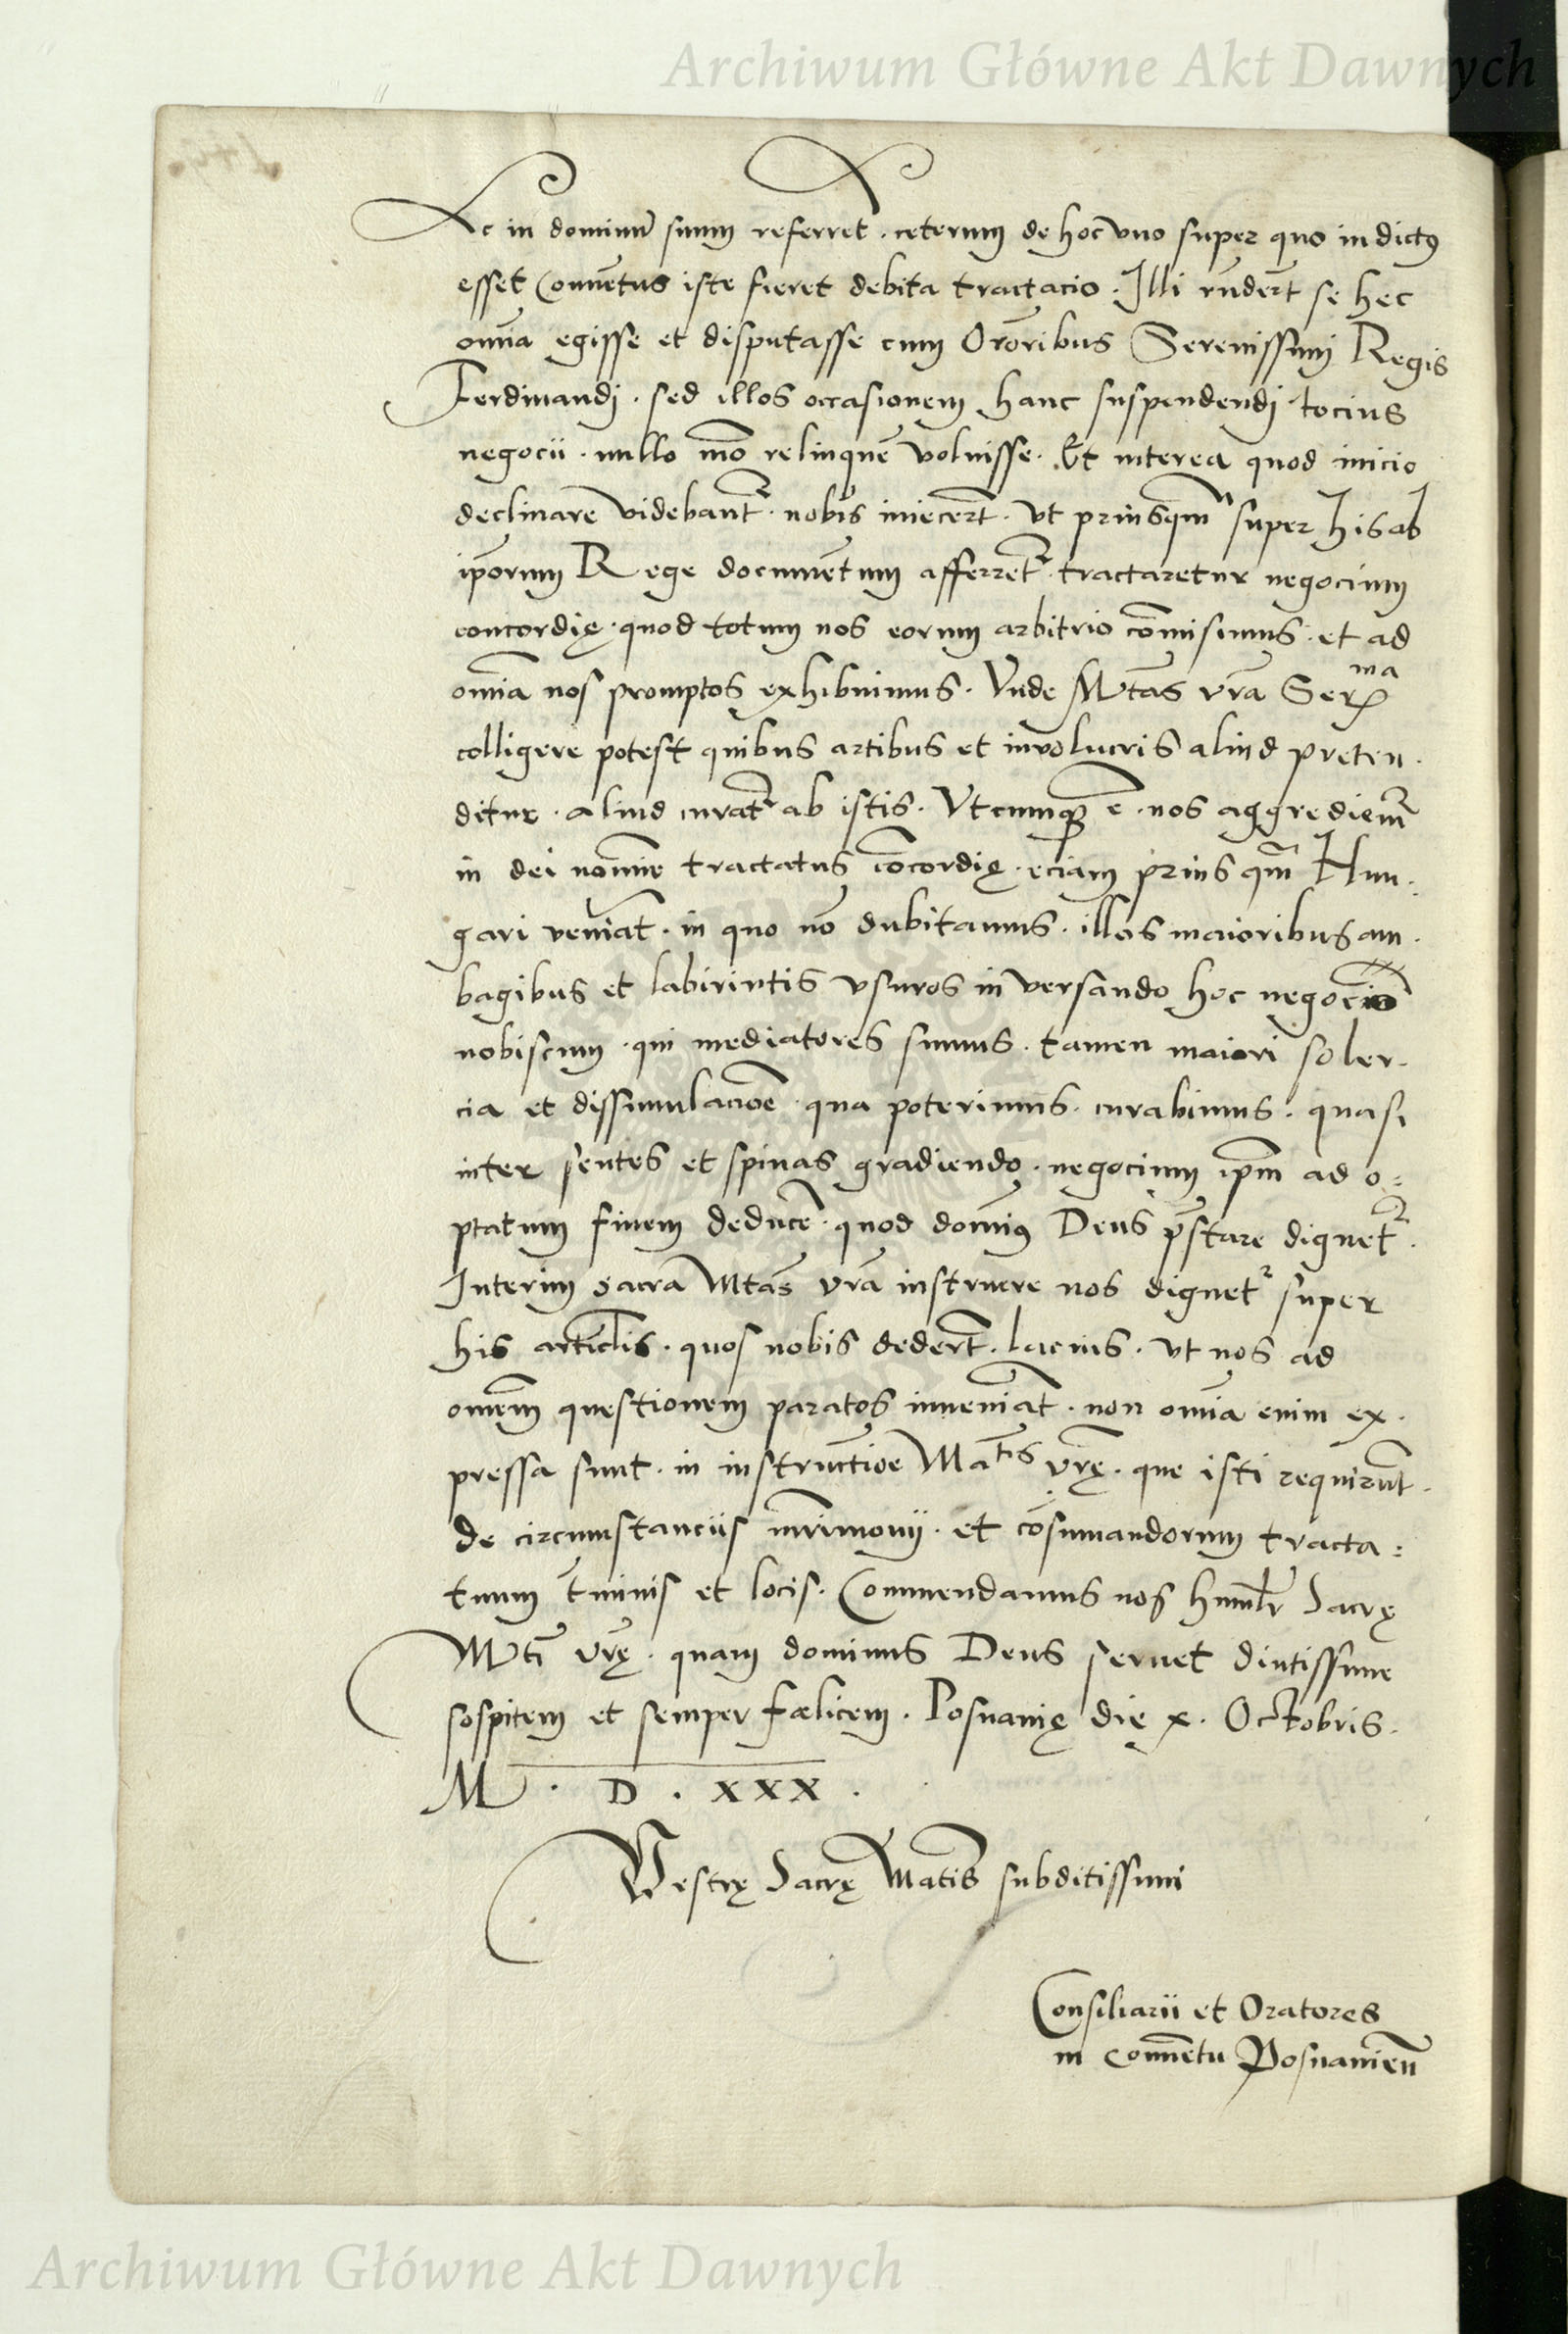 Archiwum Główne Akt Dawnych
Ac in dominū suum referret · ceterum de hoc vno super quo indictꝯ
esset Conuētus iste fieret debita tractacio · Illi rn̄dert̄ se hec
omīa egisse et disputasse cum Oror̄ibus Serenissimi Regis
Ferdinandi · sed illos occasionem hanc suspendendi tocius
negocii · nullo mō relinquē voluisse · Et interea quod inicio
declinare videbant̄ᷣ · nobis iniecert̄ · vt priusqm̄ super his ab
ip̄orum Rege documētum afferret̄ᷣ · tractaretur negocium
concordię · quod totum nos eorum arbitrio cōmisimus · et ad
omīa nos promptos exhibuimus · Vnde Mtās vrā Serma
colligere potest quibus artibus et involucris aliud preten·
ditur · aliud curat̄ᷣ ab istis · Vtcumqꝫ ē · nos aggrediem̄ᷣ
in dei nomīe tractatus cōcordię · eciam prius qm̄ Hun·
gari veniāt · in quo nō dubitamus · illos maioribus am·
bagibus et labirintis vsuros in versando hoc negocio
nobiscum · qui mediatores sumus · tamen maiori soler·
cia et dissimulacioē · qua poterimus · curabimus · quasi
inter sentes et spinas gradiendo · negocium ip̄m ad o:
ptatum finem deducē · quod domīꝯ Deus p̄stare dignet̄ᷣ ·
Interim sacra Mtās vrā instruere nos dignetᷣ super
his articlīs · quos nobis dedert̄ · lacius · vt nos ad
omēm questionem paratos inueniāt · non omīa enim ex·
pressa sunt · in instructioē Matis vrę̄ · que isti requirūt ·
de circumstanciis mr̄imonij · et cōsumandorum tracta:
tuum t̄minis et locis · Commendamus nos humilr̄ Sacrę
Mti̅ vrę̄ · quam dominus Deus seruet diutissime
sospitem et semper fælicem · Posnanię die x · Octobris ·
M · D · XXX ·
Vestrę Sacrę Matis̄ subditissimi
Consiliarii et Oratores
in Conuētu Posnanien̄
Archiwum Główne Akt Dawnych